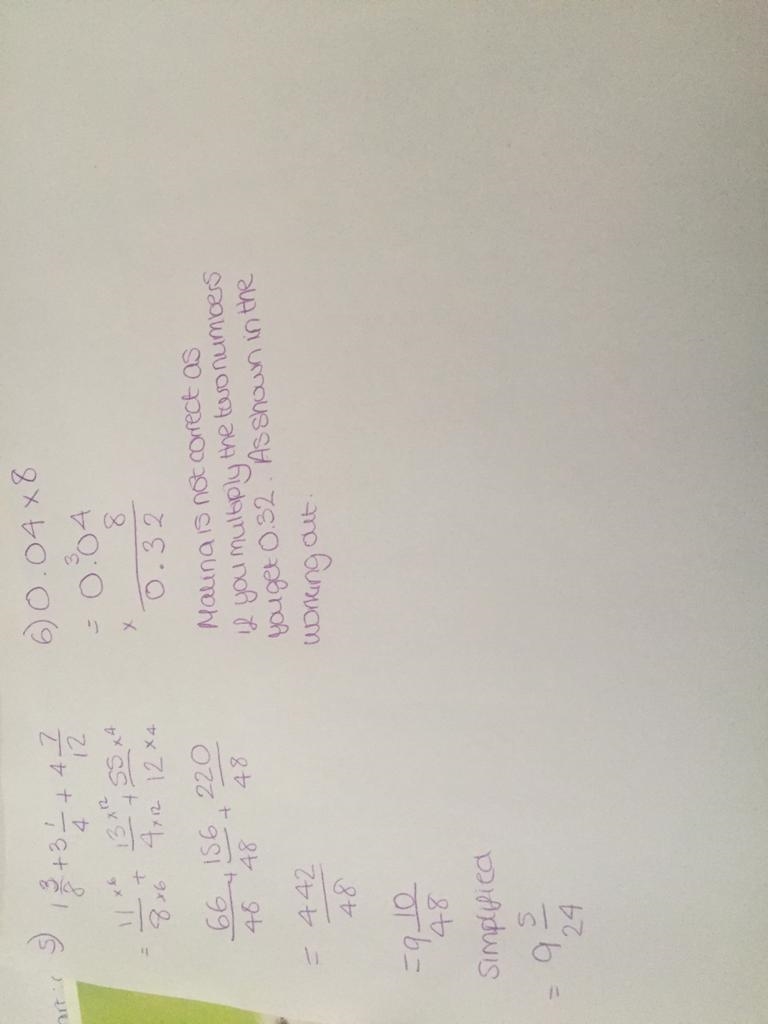 5) 1 3/8 + 3 1/4 + 4 7/12
= 11 x6/8 x6 + 13 x12/4 x12 + 55 x4/12 x4
66/48 + 156/48 + 220/48
= 442/48
= 9 10/48
Simplified
= 9 5/24
6) 0.04 x 8
= 0.³04
x 8
0.32
Malina is not correct as
if you multiply the two numbers
you get 0.32. As shown in the
working out.